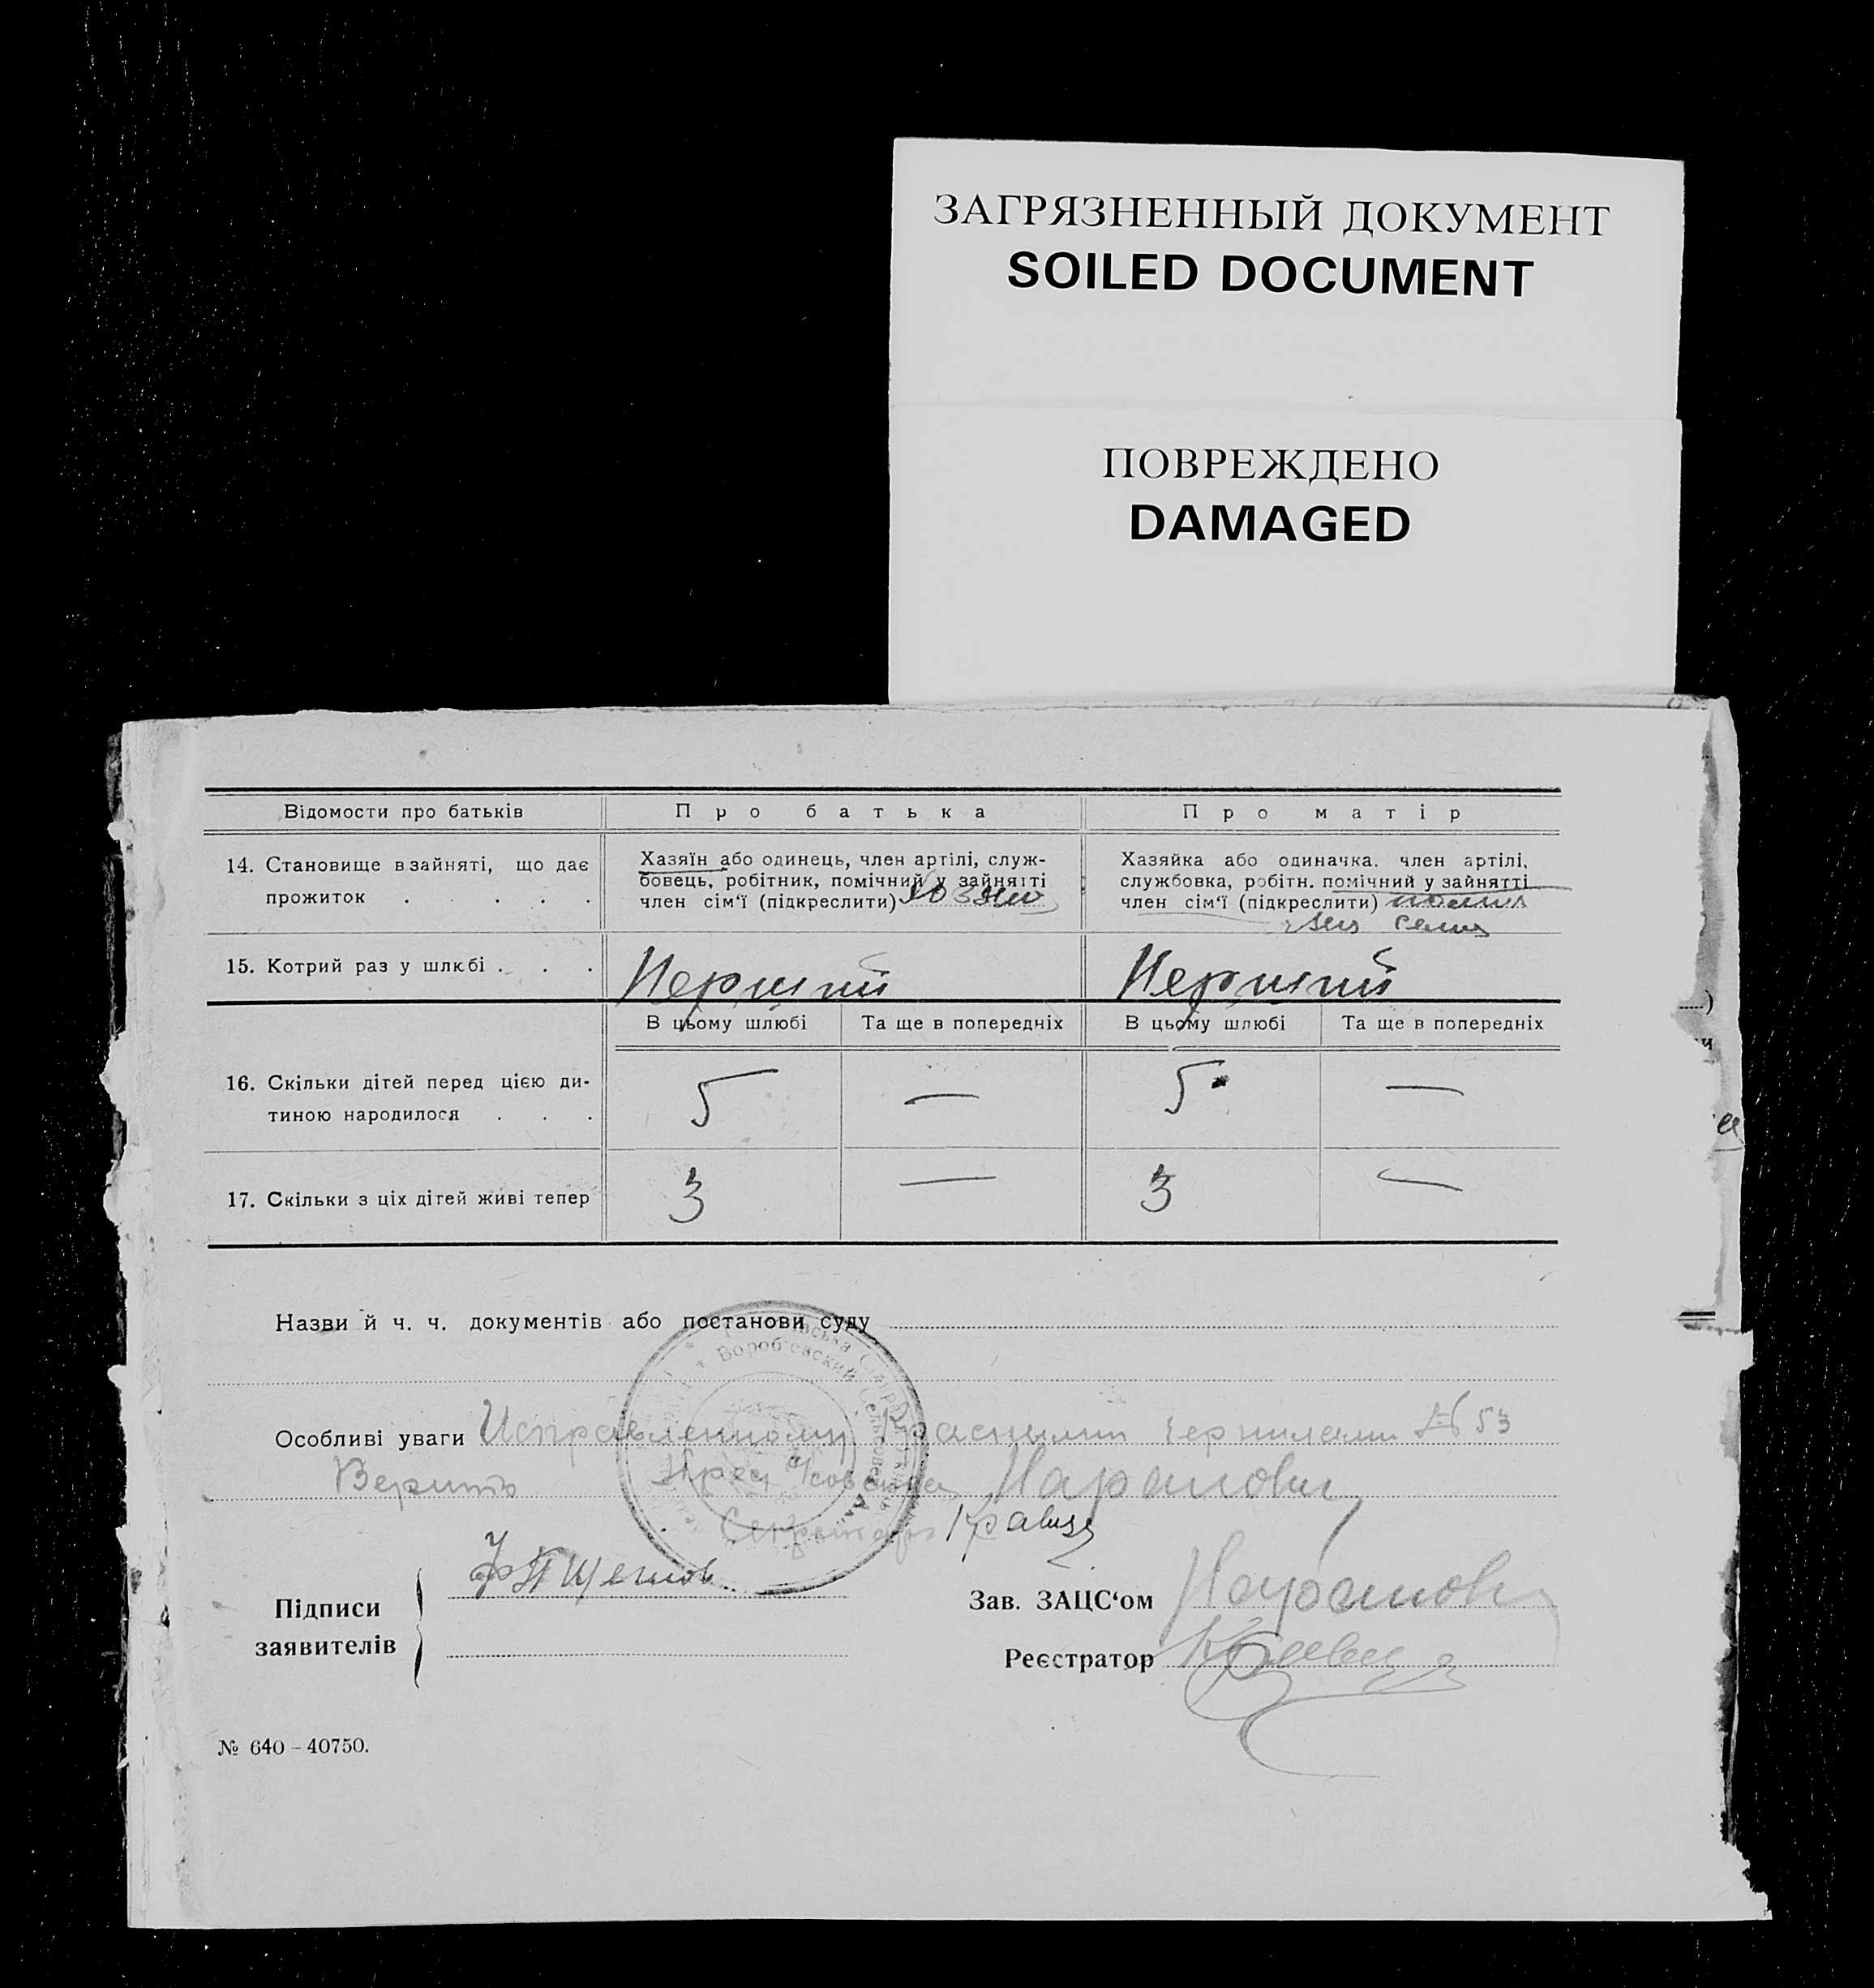 ЗАГРЯЗНЕННЫЙ ДОКУМЕНТ
SOILED DOCUMENT
ПОВРЕЖДЕНО
DAMAGED
Відомости про батьків Про батька Про матір
14. Становище в зайняті, що дає прожиток . . . .
Хазяїн або одинець, член артілі, служ-
бовець, робітник, помічний у зайнятті
член сім'ї (підкреслити) хозяин
Хазяйка або одиначка, член артілі,
службовка, робітн. помічний у зайнятті
член сім'ї (підкреслити)
семи
15. Котрий раз у шлюбі . . . Перший Перший
В цьому шлюбі Та ще в попередніх В цьому шлюбі Та ще в попередніх
16. Скільки дітей перед цією ди-
тиною народилося . . . 5 — 5 —
17. Скільки з ціх дітей живі тепер 3 — 3 —
Назви й ч. ч. документів або постанови суду
Воробʼевский Сельсовет
Особливі уваги Исправленному Красными чернилами № 53
Верить Пред Совета
Секретарь Кравец
Підписи
заявителів
Зав. ЗАЦС'ом
Реєстратор
№ 640 – 40750.